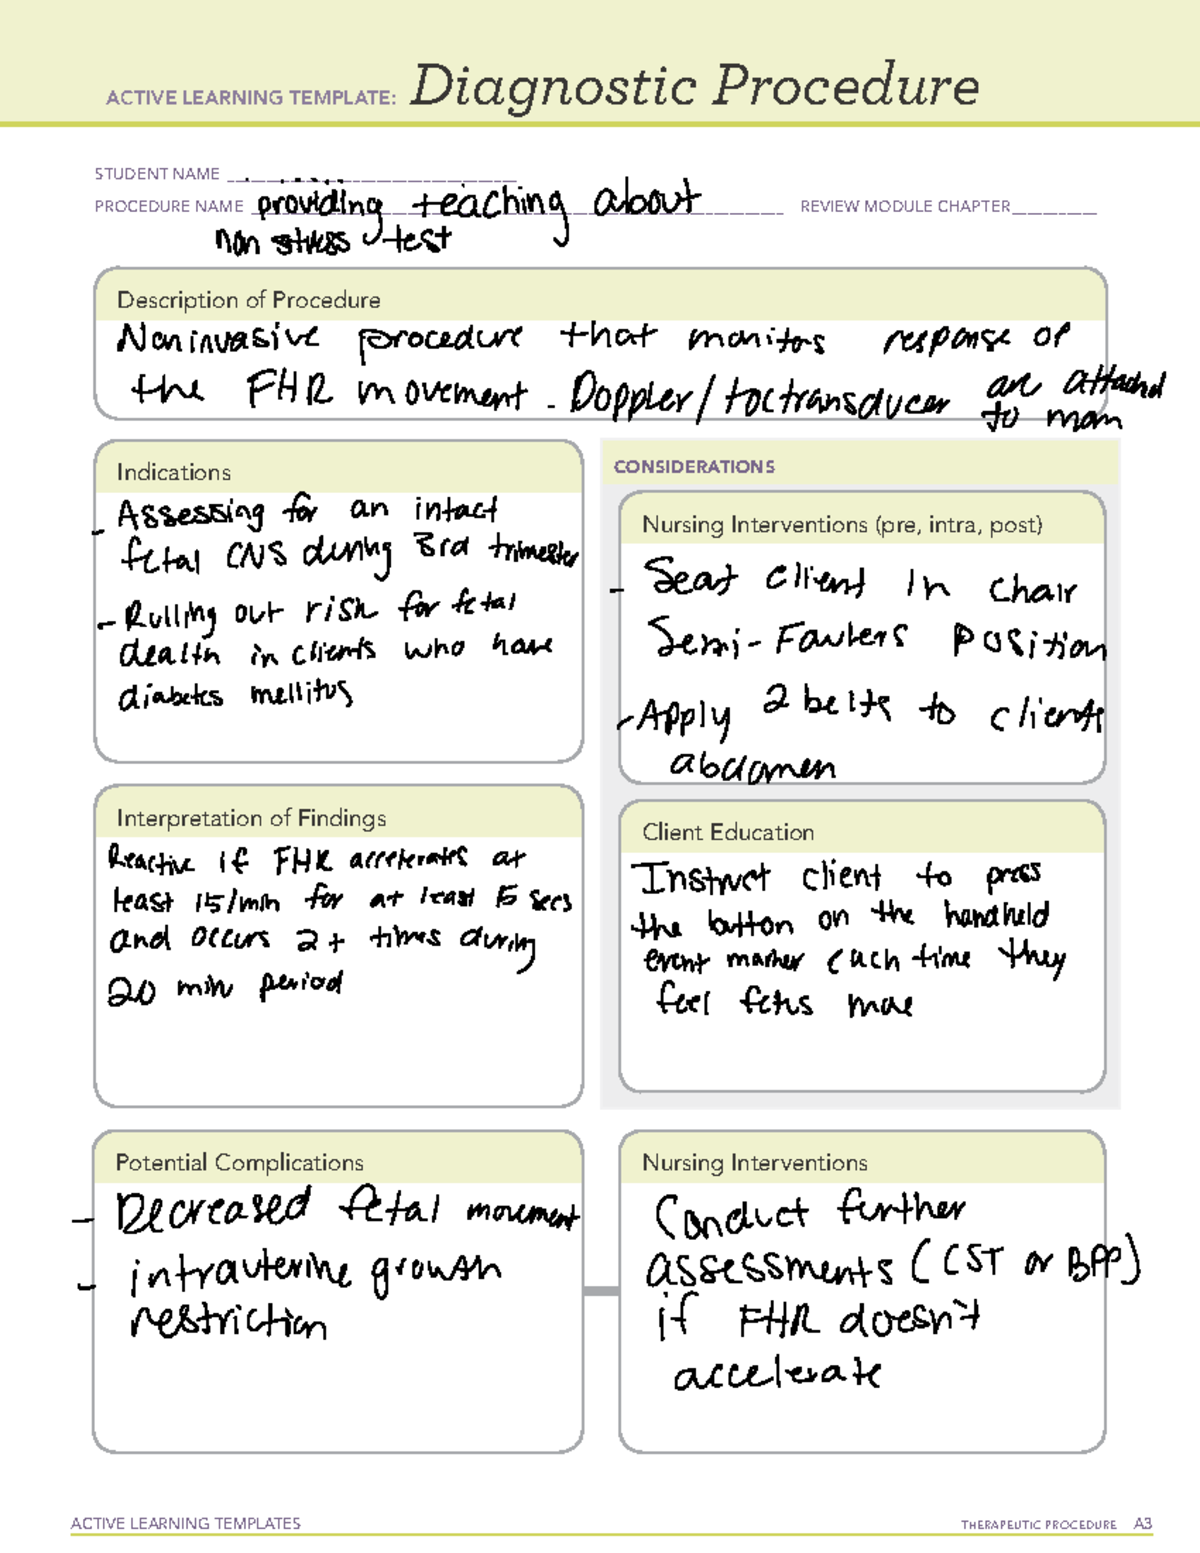 ACTIVE LEARNING TEMPLATE: Diagnostic Procedure
STUDENT NAME
PROCEDURE NAME providing teaching about REVIEW MODULE CHAPTER
non stress test
Description of Procedure
Noninvasive procedure that monitors response of
the FHR movement. Doppler/toctransducer are attached
to mom
Indications
- Assessing for an intact
fetal CNS during 3rd trimester
- Rulling out risk for fetal
death in clients who have
diabetes mellitus
CONSIDERATIONS
Nursing Interventions (pre, intra, post)
- Seat client in chair
Semi-Fowlers position
- Apply 2 belts to clients
abdomen
Interpretation of Findings
Reactive if FHR accelerates at
least 15/min for at least 15 secs
and occurs 2+ times during
20 min period
Client Education
Instruct client to press
the button on the handheld
event marker each time they
feel fetus move
Potential Complications
- Decreased fetal movement
- intrauterine growth
restriction
Nursing Interventions
Conduct further
assessments (CST or BPP)
if FHR doesn't
accelerate
ACTIVE LEARNING TEMPLATES
THERAPEUTIC PROCEDURE A3